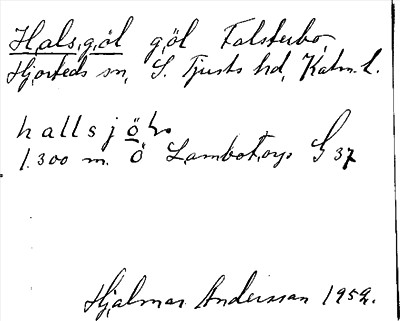 Hals,g,öl göl Falsterbo,
Hjorteds sn, S. Tjusts hd, Kalm. l.
hallsjöln
1.300 m. Ö Lambotorp G 37
Hjalmar Andersson 1952.